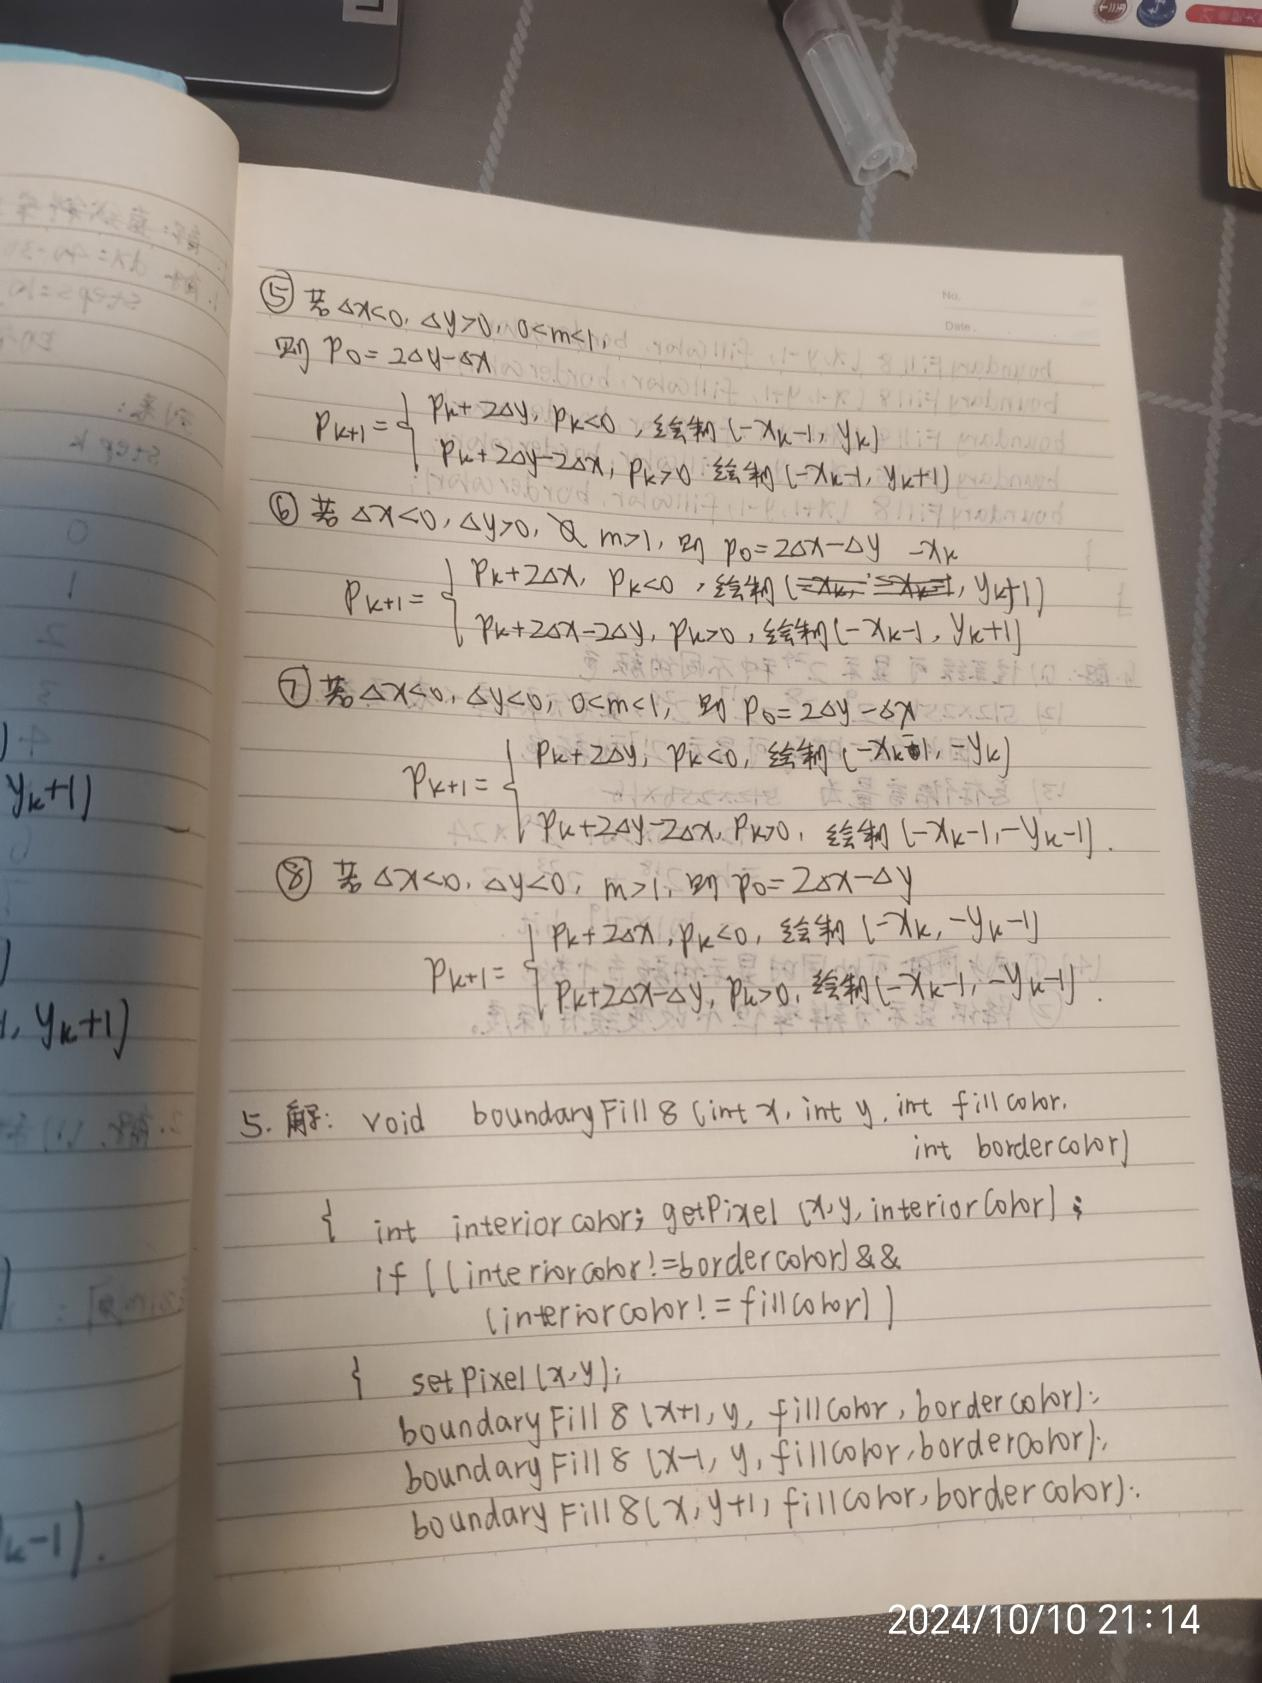 No.
Date.
⑤ 若 Δx<0, Δy>0, 0<m<1,
则 P0 = 2Δy-Δx
Pk+1 = { Pk+2Δy, Pk<0, 绘制(-xk-1, yk)
Pk+2Δy-2Δx, Pk>0 绘制(-xk-1, yk+1)
⑥ 若 Δx<0, Δy>0, m>1, 则 P0=2Δx-Δy
-xk
Pk+1 = { Pk+2Δx, Pk<0, 绘制( , yk+1)
Pk+2Δx-2Δy, Pk>0, 绘制(-xk-1, yk+1)
⑦ 若 Δx<0, Δy<0, 0<m<1, 则 P0=2Δy-Δx
Pk+1 = { Pk+2Δy, Pk<0, 绘制(-xk-1, -yk)
Pk+2Δy-2Δx, Pk>0, 绘制(-xk-1, -yk-1).
⑧ 若 Δx<0, Δy<0, m>1, 则 P0=2Δx-Δy
Pk+1 = { Pk+2Δx, Pk<0, 绘制(-xk, -yk-1)
Pk+2Δx-Δy, Pk>0, 绘制(-xk-1, -yk-1).
5. 解: void boundaryFill8(int x, int y, int fillcolor,
int bordercolor)
{ int interiorcolor; getPixel(x,y,interiorColor);
if((interiorcolor!=bordercolor)&&
(interiorcolor!=fillColor))
{ setPixel(x,y);
boundaryFill8(x+1, y, fillColor, bordercolor);
boundaryFill8(x-1, y, fillColor, borderColor);
boundaryFill8(x, y+1, fillColor, bordercolor);
yk+1)
, yk+1)
k-1).
2024/10/10 21:14